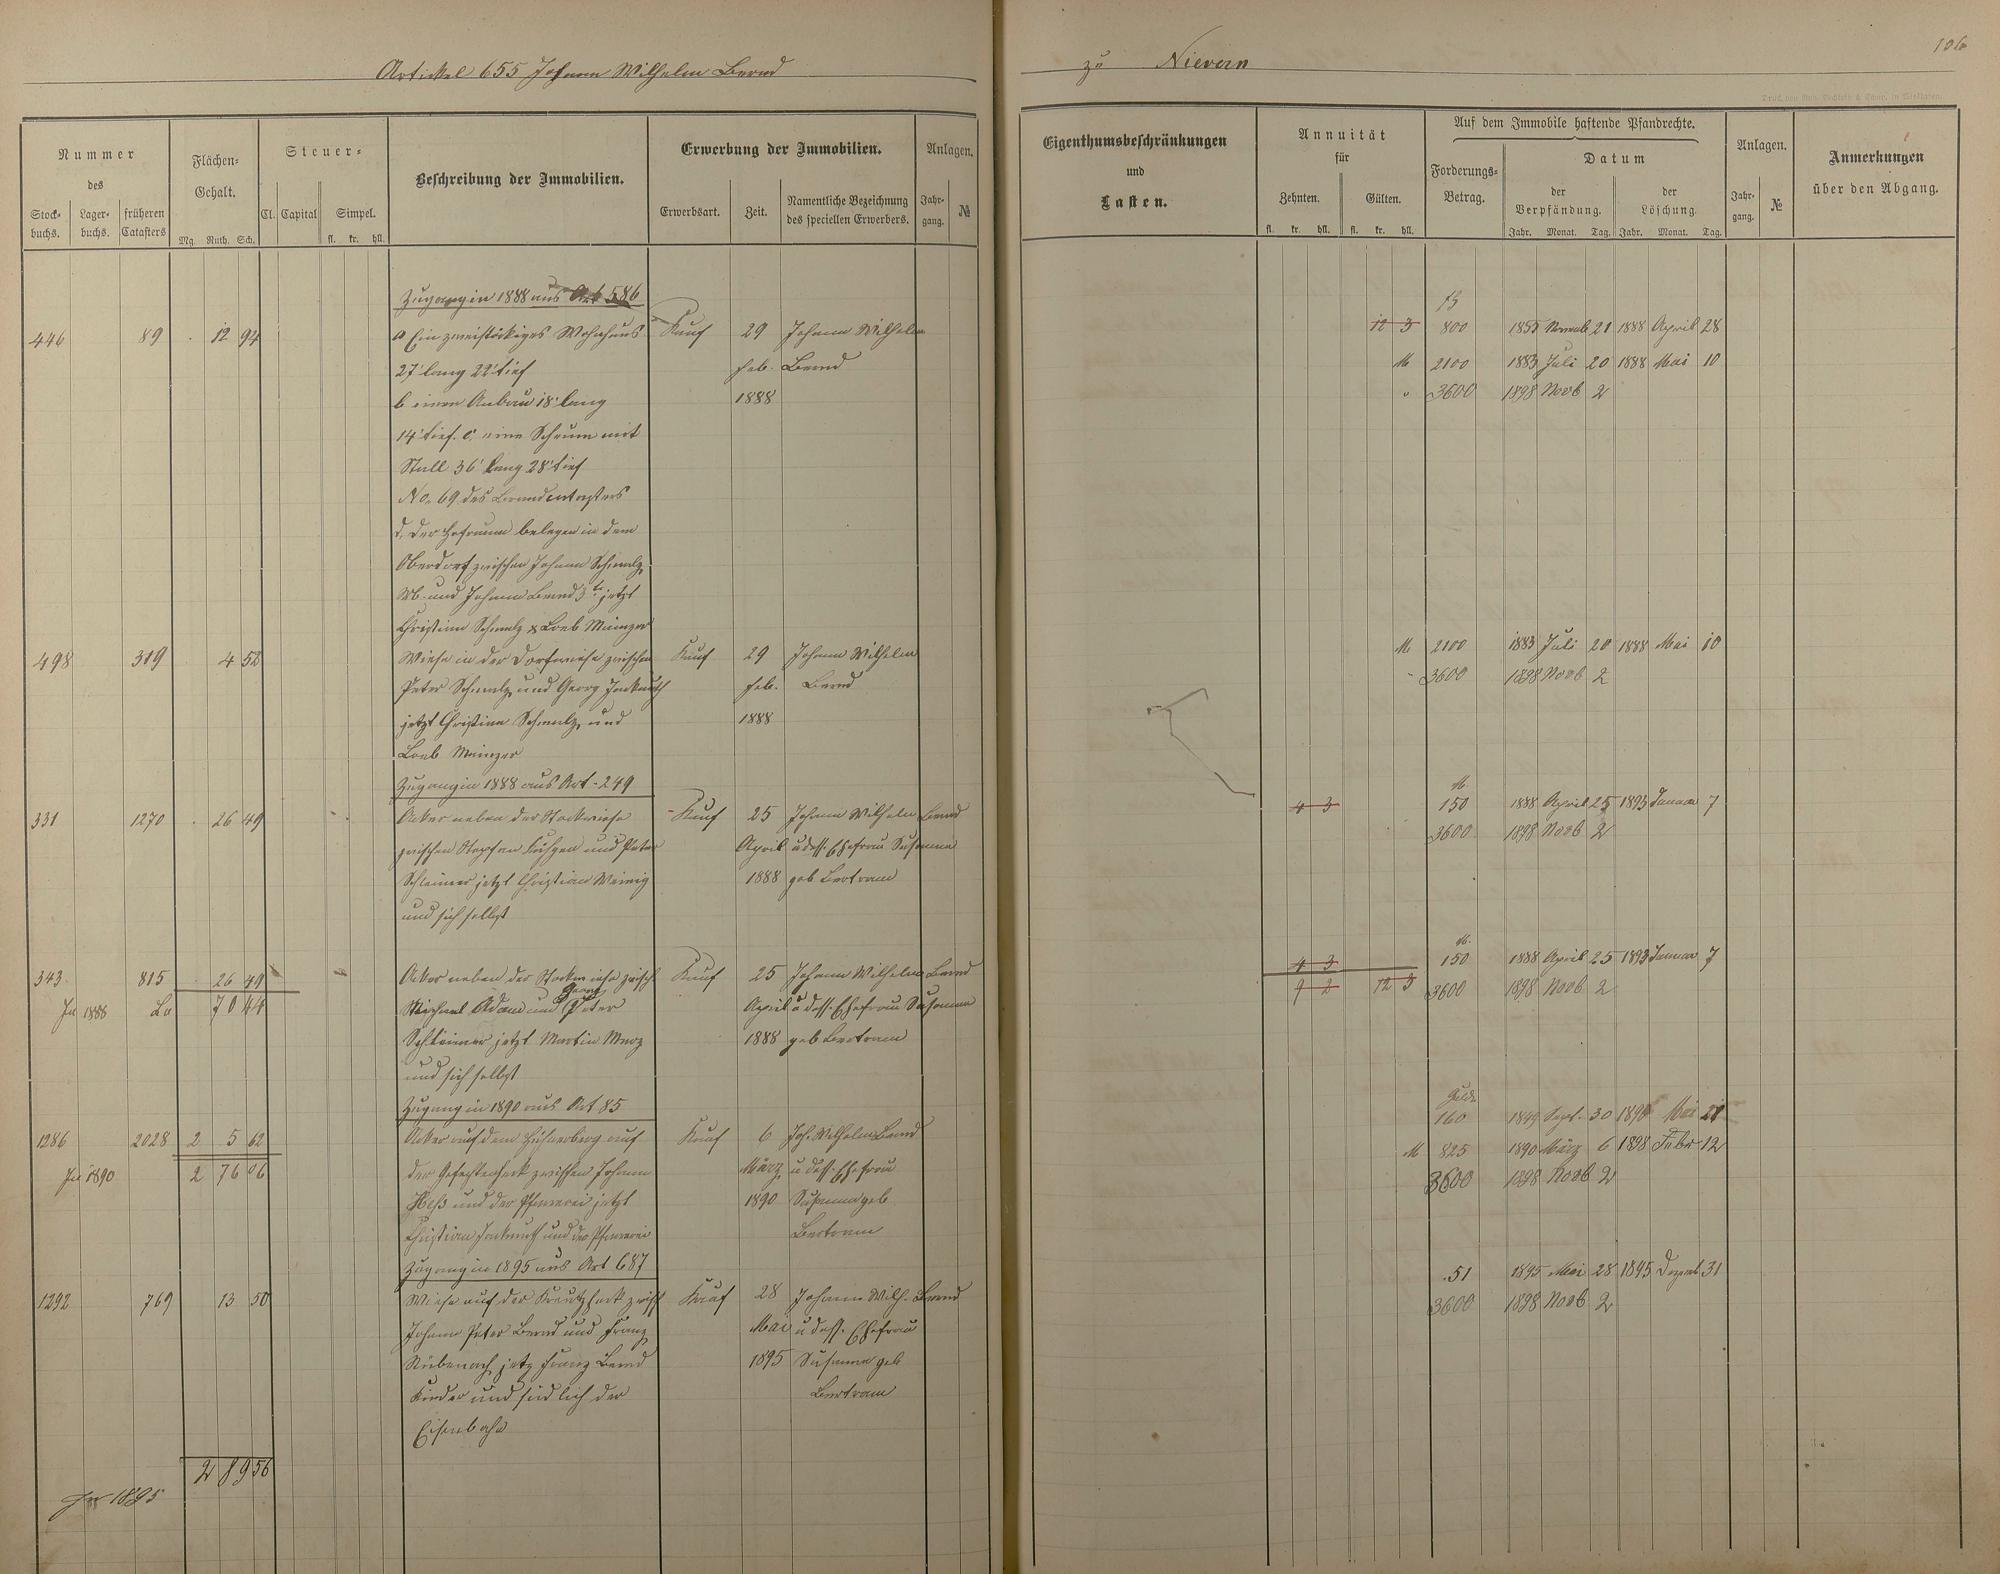 Artickel 655 Johann Wilhelm Bernd
zu Nievern
106
Nummer
des
Stock-
buchs.
Lager-
buchs.
früheren
Catasters
Flächen-
Gehalt.
Mg. Ruth. Sch.
Steuer-
Cl. Capital Simpel.
fl. kr. hll.
Beschreibung der Immobilien.
Erwerbung der Immobilien.
Erwerbsart. Zeit.
Namentliche Bezeichnung
des speciellen Erwerbers.
Anlagen.
Jahr-
gang.
№
Eigenthumsbeschränkungen
und
Lasten.
Annuität
für
Zehnten. Gülten.
fl. kr. hll. fl. kr. hll.
Auf dem Immobile haftende Pfandrechte.
Forderungs-
Betrag.
Datum
der
Verpfändung.
der
Löschung.
Jahr. Monat. Tag. Jahr. Monat. Tag.
Anlagen.
Jahr-
gang.
№
Anmerkungen
über den Abgang.
Zugang in 1888 aus Art 586
446 89 12 94 a Ein zweistöckiges Wohnhaus Kauf 29 Johann Wilhelm 12 3 800 1855 21 1888 April 28
27' lang 22' tief Feb. Bernd M 2100 1883 Juli 20 1888 Mai 10
b einen Anbau 18' lang 1888 " 3600 1898 Novb 2
14' tief. c. eine Scheuer mit
Stall 36' lang 28' tief
No. 69 des Brandcatasters
d. der Hofraum belegen in dem
Oberdorf zwischen Johann Schmalz
und Johann Bernd 3te jetzt
Christian Schmalz & Loeb Mainzer
498 319 4 52 Wiese in der Dorfwiese zwischen Kauf 29 Johann Wilhelm M 2100 1883 Juli 20 1888 Mai 10
Peter Schmalz und Georg Jackmuth Feb. Bernd 3600 1898 Novb 2
jetzt Christian Schmalz und 1888
Loeb Mainzer
Zugang in 1888 aus Art. 249
331 1270 26 49 Acker neben der Stockwiese Kauf 25 Johann Wilhelm Bernd 4 3 M. 150 1888 April 25 1893 Januar 7
zwischen Stephan und Peter April u dess. Ehefrau Susanna 3600 1898 Novb 2
Schleimer jetzt Christian 1888 geb Bertram
und sich selbst
343 815 26 49 Acker neben der Stockwiese zwisch Kauf 25 Johann Wilhelm Bernd 4 3 M. 150 1888 April 25 1893 Januar 7
In 1888 La 70 44 Michael Adam und Georg Peter April u dess. Ehefrau Susanna 9 2 12 3 3600 1898 Novb 2
Schleimer jetzt Martin 1888 geb Bertram
und sich selbst
Zugang in 1890 aus Art 85
1286 2028 2 5 62 Acker auf dem Hühnerberg auf Kauf 6 Joh. Wilhelm Bernd 160 1849 Sept. 30 Mai
der zwischen Johann März u dess. Ehefrau M 825 1890 März 6 1898 Febr 12
In 1890 2 76 06 und der Pfarrei jetzt 1890 Susanna geb 3600 1898 Novb 2
Christian Jackmuth und der Pfarrei Bertram
Zugang in 1895 aus Art 687
1292 769 13 50 Wiese auf der zwisch Kauf 28 Johann Wilh. Bernd 51 1895 Mai 28 1895 Dezemb 31
Johann Peter Bernd und Franz Mai u dess. Ehefrau 3600 1898 Novb 2
jetz Franz Bernd 1895 Susanna geb
Kinder und südlich der Bertram
Eisenbahn
2 89 56
In 1895